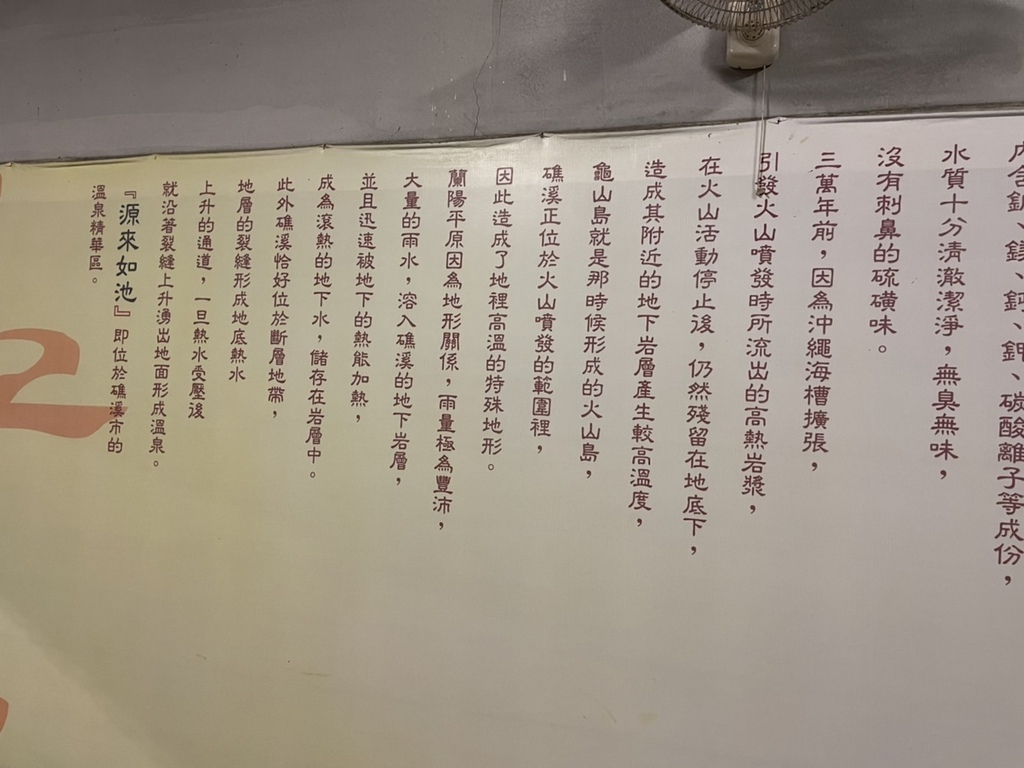 內含鈉、鎂、鈣、鉀、碳酸離子等成份，
水質十分清澈潔淨，無臭無味，
沒有刺鼻的硫磺味。
三萬年前，因為沖繩海槽擴張，
引發火山噴發時所流出的高熱岩漿，
在火山活動停止後，仍然殘留在地底下，
造成其附近的地下岩層產生較高溫度，
龜山島就是那時候形成的火山島，
礁溪正位於火山噴發的範圍裡，
因此造成了地裡高溫的特殊地形。
蘭陽平原因為地形關係，雨量極為豐沛，
大量的雨水，溶入礁溪的地下岩層，
並且迅速被地下的熱能加熱，
成為滾熱的地下水，儲存在岩層中。
此外礁溪恰好位於斷層地帶，
地層的裂縫形成地底熱水
上升的通道，一旦熱水受壓後
就沿著裂縫上升湧出地面形成溫泉。
『源來如池』即位於礁溪市的
溫泉精華區。
2